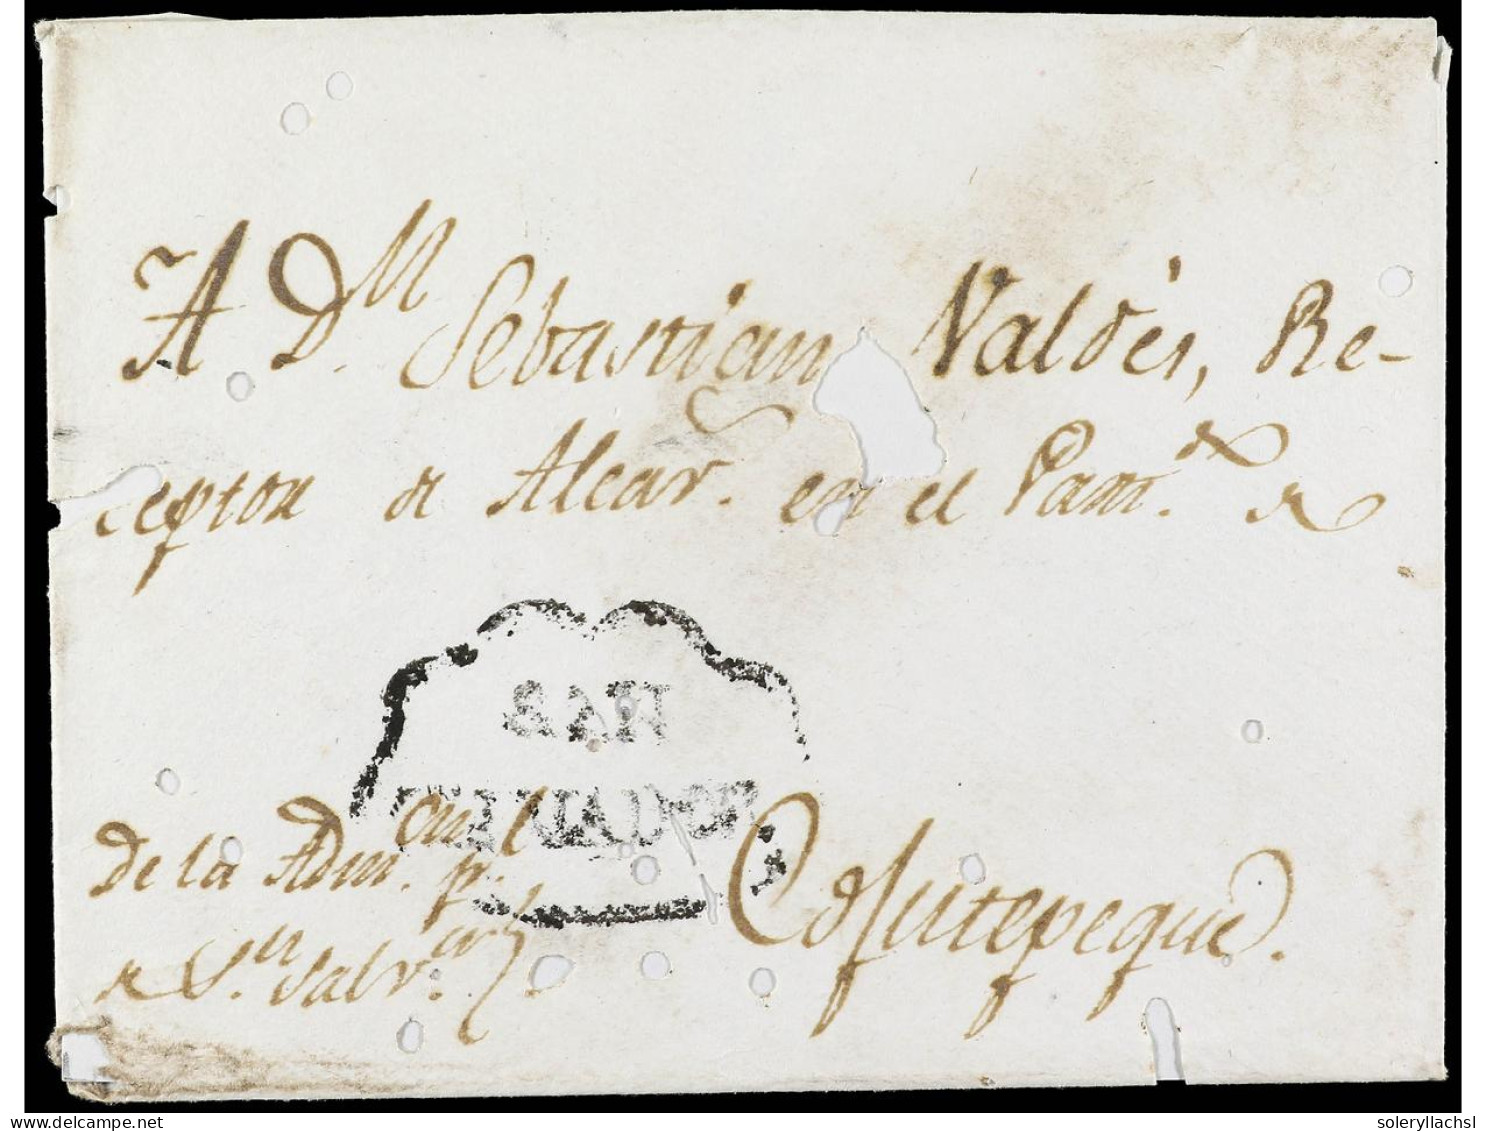 A D.n Sebastian Valdés, Re-
ceptor de Alcav.s en el Pam.do de
SAN
SALVADOR
De la Adm.on pral
de S.n Salv.or
Cojutepeque.
delcampe.net
soleryllachsl